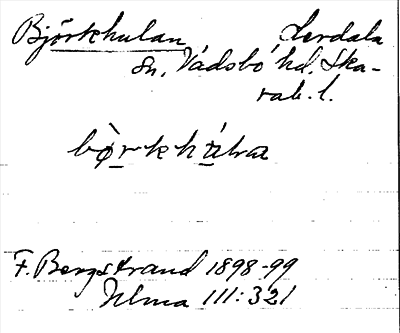 Björkhulan Lerdala
sn, Vadsbo hd. Ska-
rab. l.
bø̀rkhúlra
F. Bergstrand 1898-99
Ulma 111:321